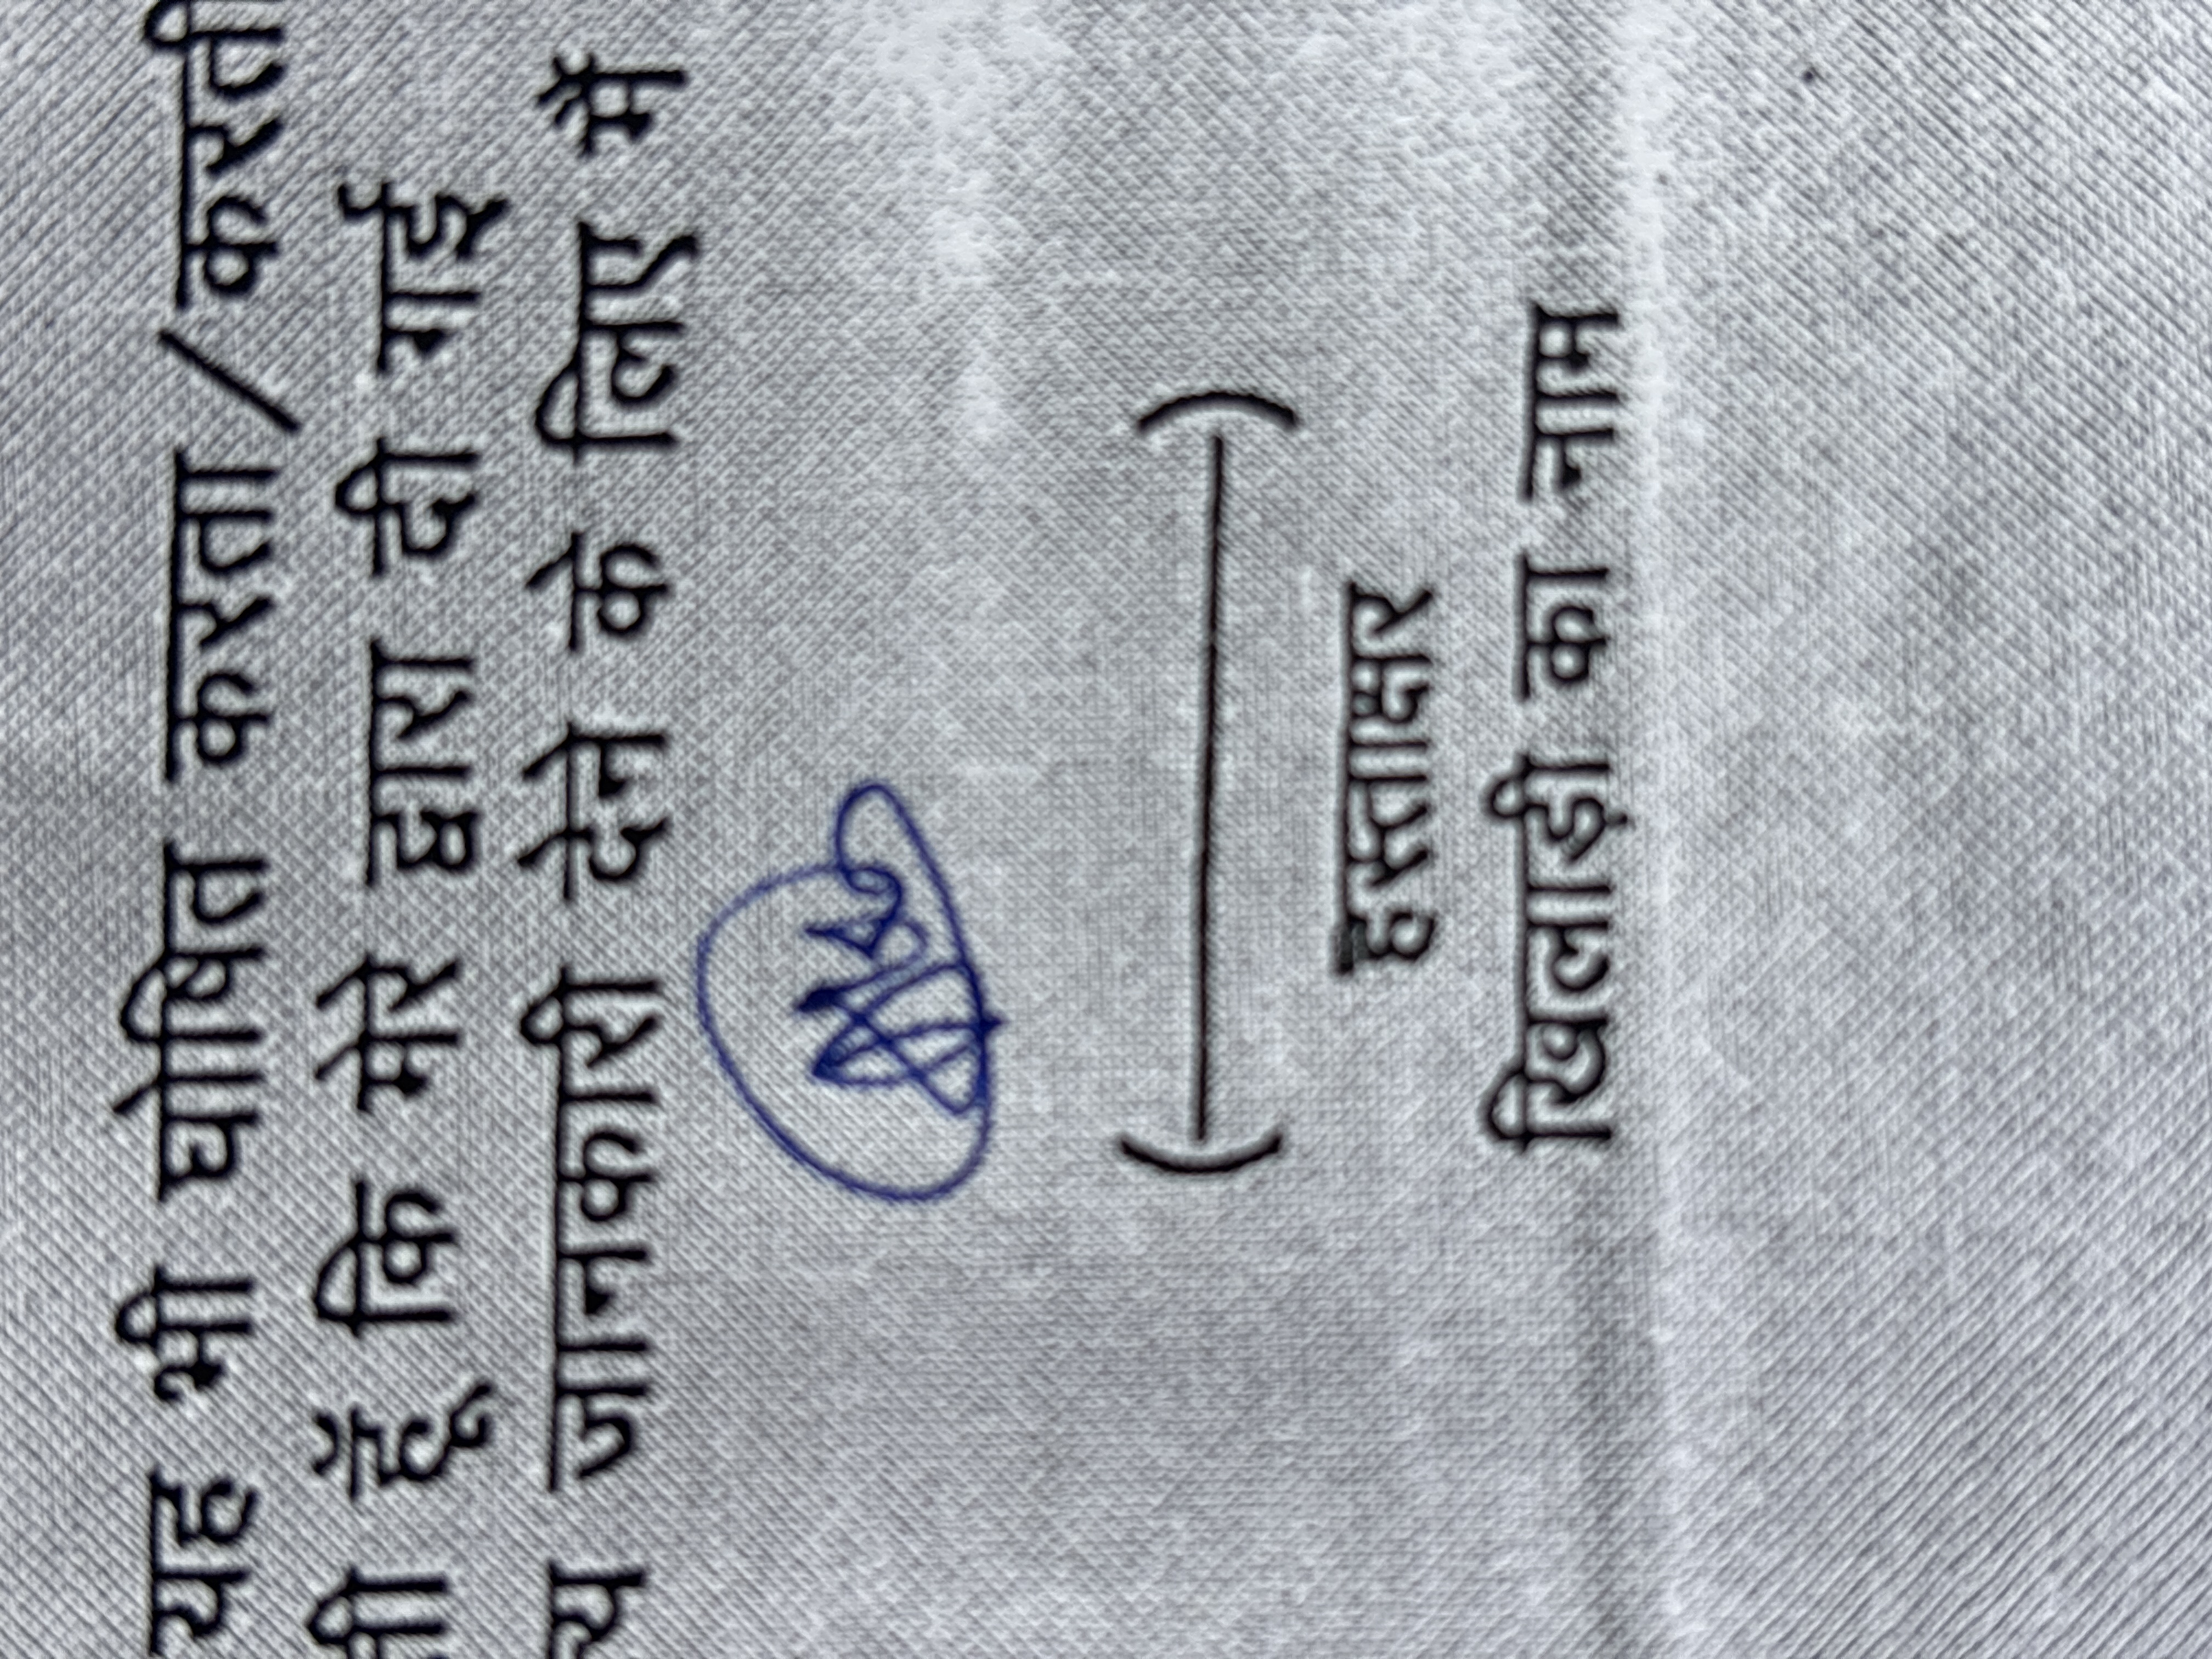 यह भी घोषित करता/करती
हूँ कि मेरे द्वारा दी गई
जानकारी देने के लिए में
(
)
हस्ताक्षर
खिलाड़ी का नाम